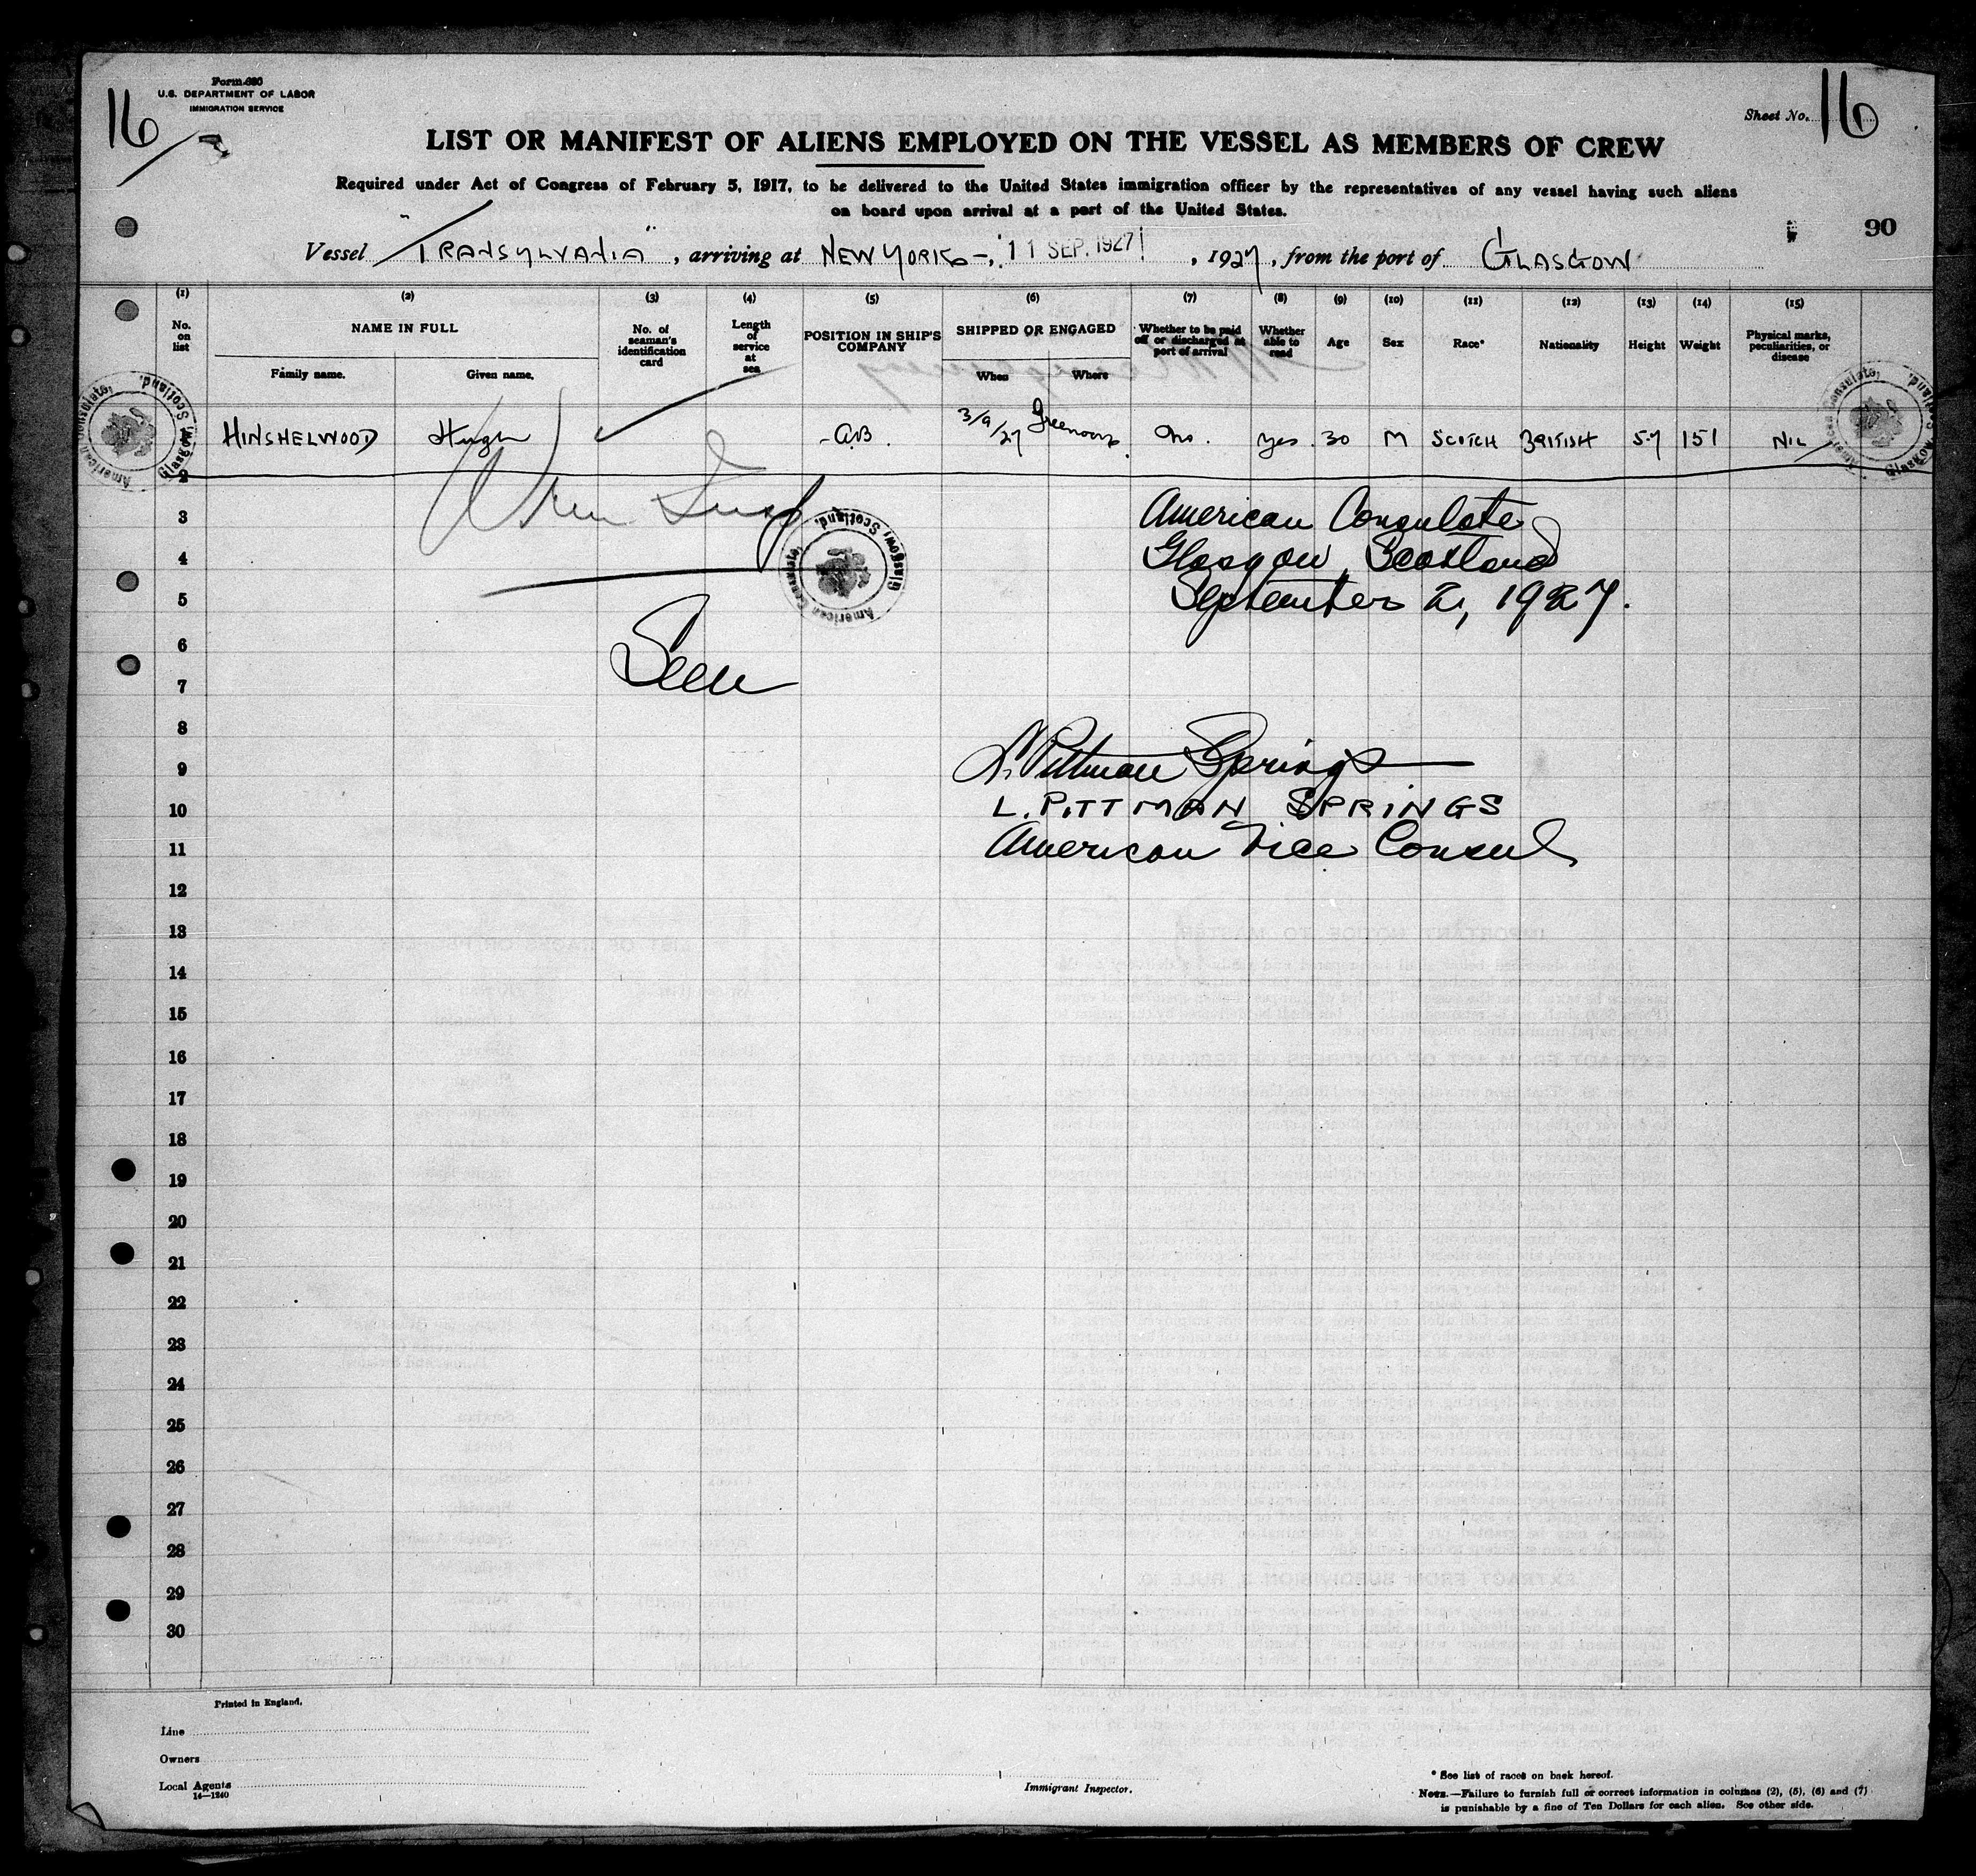 Form 680
U.S. DEPARTMENT OF LABOR
IMMIGRATION SERVICE
16
Sheet No. 16
LIST OR MANIFEST OF ALIENS EMPLOYED ON THE VESSEL AS MEMBERS OF CREW
Required under Act of Congress of February 5, 1917, to be delivered to the United States immigration officer by the representatives of any vessel having such aliens
on board upon arrival at a port of the United States.
90
Vessel "TRANSYLVANIA", arriving at NEW YORK, 11 SEP. 1927, 1927, from the port of GLASGOW
(1) (2) (3) (4) (5) (6) (7) (8) (9) (10) (11) (12) (13) (14) (15)
No. on list
NAME IN FULL
Family name. Given name.
No. of seaman's identification card
Length of service at sea
POSITION IN SHIP'S COMPANY
SHIPPED OR ENGAGED
When Where
Whether to be paid off or discharged at port of arrival
Whether able to read
Age
Sex
Race*
Nationality
Height
Weight
Physical marks, peculiarities, or disease
American Consulate, Glasgow, Scotland.
American Consulate, Glasgow, Scotland.
HINSHELWOOD Hugh AB. 3/9/27 Greenock No. Yes 30 M SCOTCH BRITISH 5.7 151 NIL
2
3
American Consulate
4
Glasgow, Scotland
5
September 2, 1927.
American Consulate, Glasgow, Scotland.
6
Seen
7
8
9
L. Pittman Springs
10
L. PITTMAN SPRINGS
11
American Vice Consul
12
13
14
15
16
17
18
19
20
21
22
23
24
25
26
27
28
29
30
Printed in England.
Line
Owners
Local Agents
14—1240
Immigrant Inspector.
* See list of races on back hereof.
NOTE.—Failure to furnish full or correct information in columns (2), (5), (6) and (7)
is punishable by a fine of Ten Dollars for each alien. See other side.